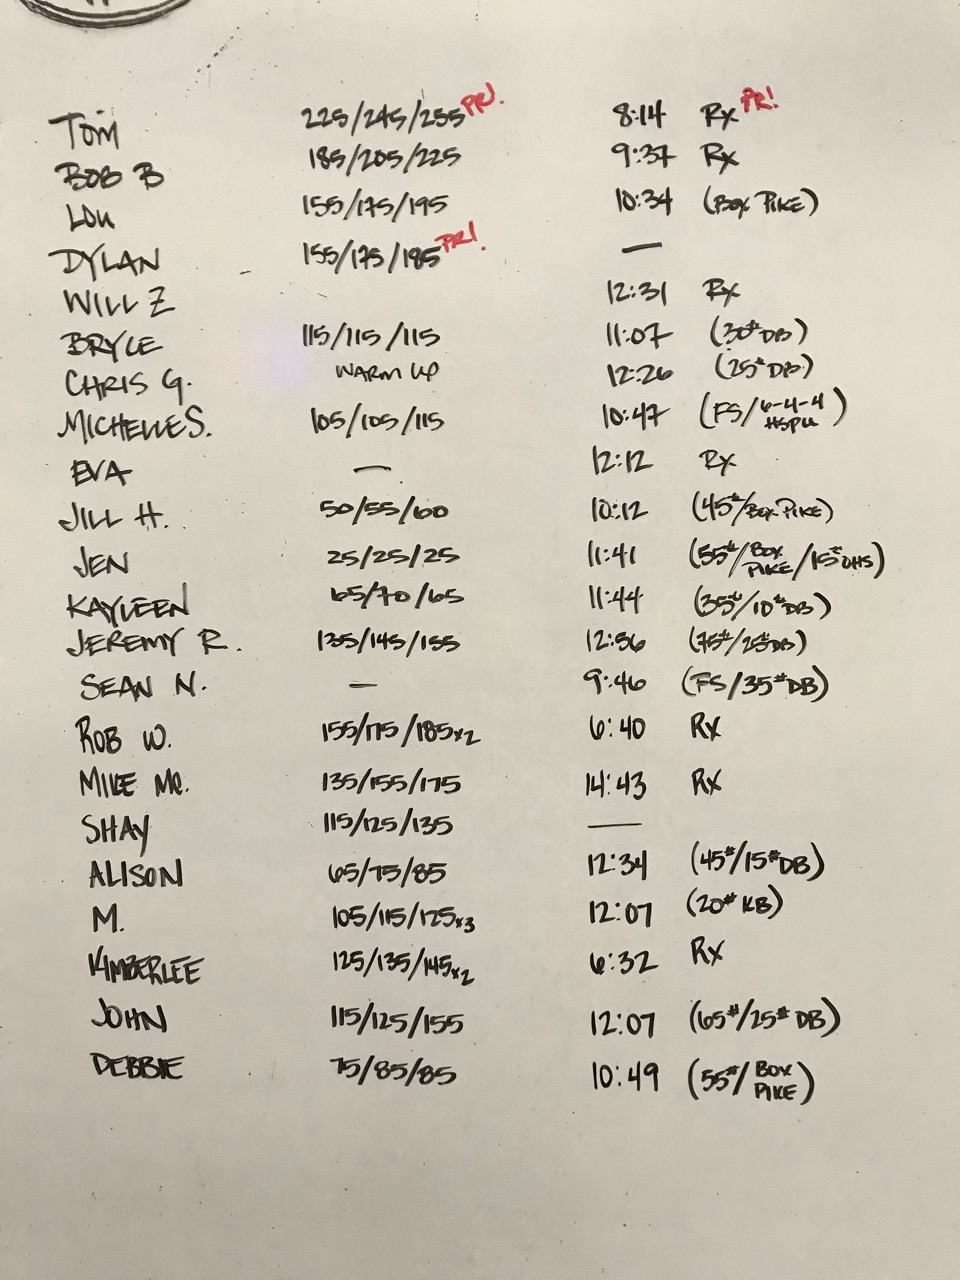 Tom 225/245/255 PR! 8:14 Rx PR!
BOB B 185/205/225 9:37 Rx
LOU 155/175/195 10:34 (BOX PIKE)
DYLAN 155/175/185 PR! —
WILL Z 12:31 Rx
BRYCE 115/115/115 11:07 (30# DB)
CHRIS G. WARM UP 12:26 (25# DB)
MICHELLE S. 105/105/115 10:47 (FS/6-4-4 HSPU)
EVA — 12:12 Rx
JILL H. 50/55/60 10:12 (45#/BOX PIKE)
JEN 25/25/25 11:41 (55#/BOX PIKE/15# OHS)
KAYLEEN 65/70/65 11:44 (35#/10# DB)
JEREMY R. 135/145/155 12:56 (75#/25# DB)
SEAN N. — 9:46 (FS/35# DB)
ROB W. 155/175/185x2 6:40 Rx
MIKE Mc. 135/155/175 14:43 Rx
SHAY 115/125/135 —
ALISON 65/75/85 12:34 (45#/15# DB)
M. 105/115/125x3 12:07 (20# KB)
KIMBERLEE 125/135/145x2 6:32 Rx
JOHN 115/125/155 12:07 (65#/25# DB)
DEBBIE 75/85/85 10:49 (55#/BOX PIKE)